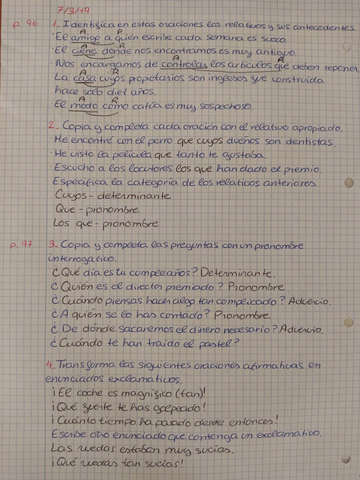 7/3/19
p. 96 1. Identifica en estas oraciones los relativos y sus antecedentes.
A R
·El amigo a quien escribe cada semana es sueco.
A R
·El cine donde nos encontramos es muy antiguo.
A R
·Nos encargamos de controlar los artículos que deben reponer.
·La casa cuyos propietarios son ingleses fue construida
hace solo diez años.
A R
·El modo como actúa es muy sospechoso.
2. Copia y completa cada oración con el relativo apropiado.
·Me encontré con el perro que cuyos dueños son dentistas.
·He visto la película que tanto te gustaba.
·Escucho a los locutores los que han dado el premio.
Especifica la categoría de los relativos anteriores
Cuyos - determinante
Que - pronombre
Los que - pronombre
p. 97 3. Copia y completa las preguntas con un pronombre
interrogativo.
¿Qué día es tu cumpleaños? Determinante.
¿Quién es el director premiado? Pronombre.
¿Cuándo piensas hacer algo tan complicado? Adverbio.
¿A quién se lo has contado? Pronombre.
¿De dónde sacaremos el dinero necesario? Adverbio.
¿Cuándo te han traído el pastel?
4. Transforma las siguientes oraciones afirmativas en
enunciados exclamativos.
¡El coche es magnífico (tan)!
¡Qué fuerte te has golpeado!
¡Cuánto tiempo ha pasado desde entonces!
Escribe otro enunciado que contenga un exclamativo.
Las ruedas estaban muy sucias.
¡Qué ruedas tan sucias!